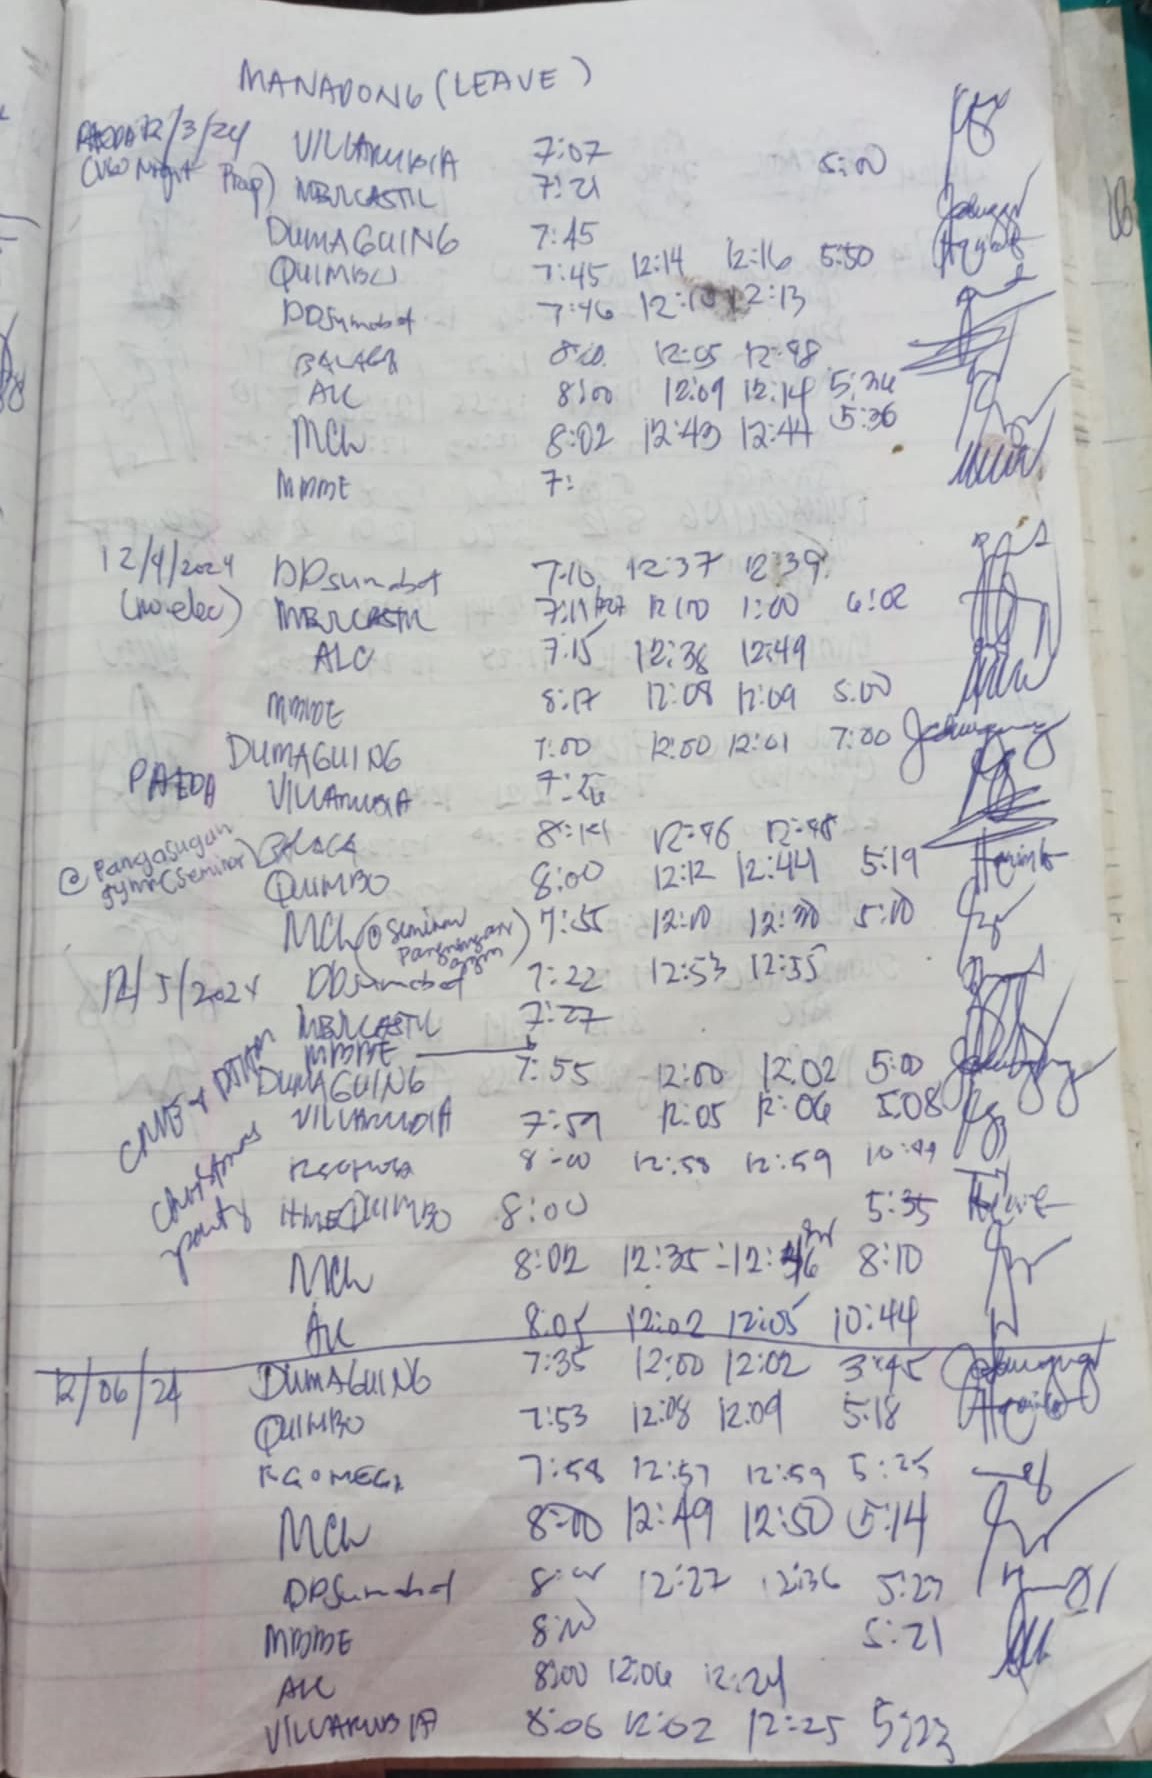 MANADONG (LEAVE)
12/3/24 VILLARUBIA 7:07 5:00
MBRCASTIL 7:21
DUMAGUING 7:45
QUIMBO 7:45 12:14 12:16 5:50
DDSumabat 7:46 12:13
8:00 12:05 12:48
ALC 8:00 12:09 12:14 5:34
MCh 8:02 12:43 12:44 5:36
MBBE 7:
12/4/2024 DDSumabat 7:10 12:37 12:39
(no elec) MBRCASTIL 7:11 12:00 1:00 6:02
ALC 7:15 12:38 12:49
MBBE 8:17 12:08 12:09 5:00
DUMAGUING 7:00 12:00 12:01 7:00
VILLARUBIA
8:14 12:46 12:48
@ Pangasugan
gym (Seminar) QUIMBO 8:00 12:12 12:44 5:19
MCh (@ Seminar 7:55 12:10 12:30 5:10
12/5/2024 DDSumabat 7:22 12:53 12:55
MBRCASTIL 7:27
MBBE
DUMAGUING 7:55 12:00 12:02 5:00
VILLARUBIA 7:59 12:05 12:06 5:08
8:00 12:58 12:59 10:44
Christmas
party
HMEQUIMBO 8:00 5:35
MCh 8:02 12:35 - 12:36 8:10
ALC 8:05 12:02 12:05 10:44
12/06/24 DUMAGUING 7:35 12:00 12:02 3:45
QUIMBO 7:53 12:08 12:09 5:18
RGOMEGA 7:58 12:57 12:59 5:25
MCh 8:00 12:49 12:50 5:14
DDSumabat 12:27 12:36 5:27
MBBE 8:00 5:21
ALC 8:00 12:06 12:24
VILLARUBIA 8:06 12:02 12:25 5:23